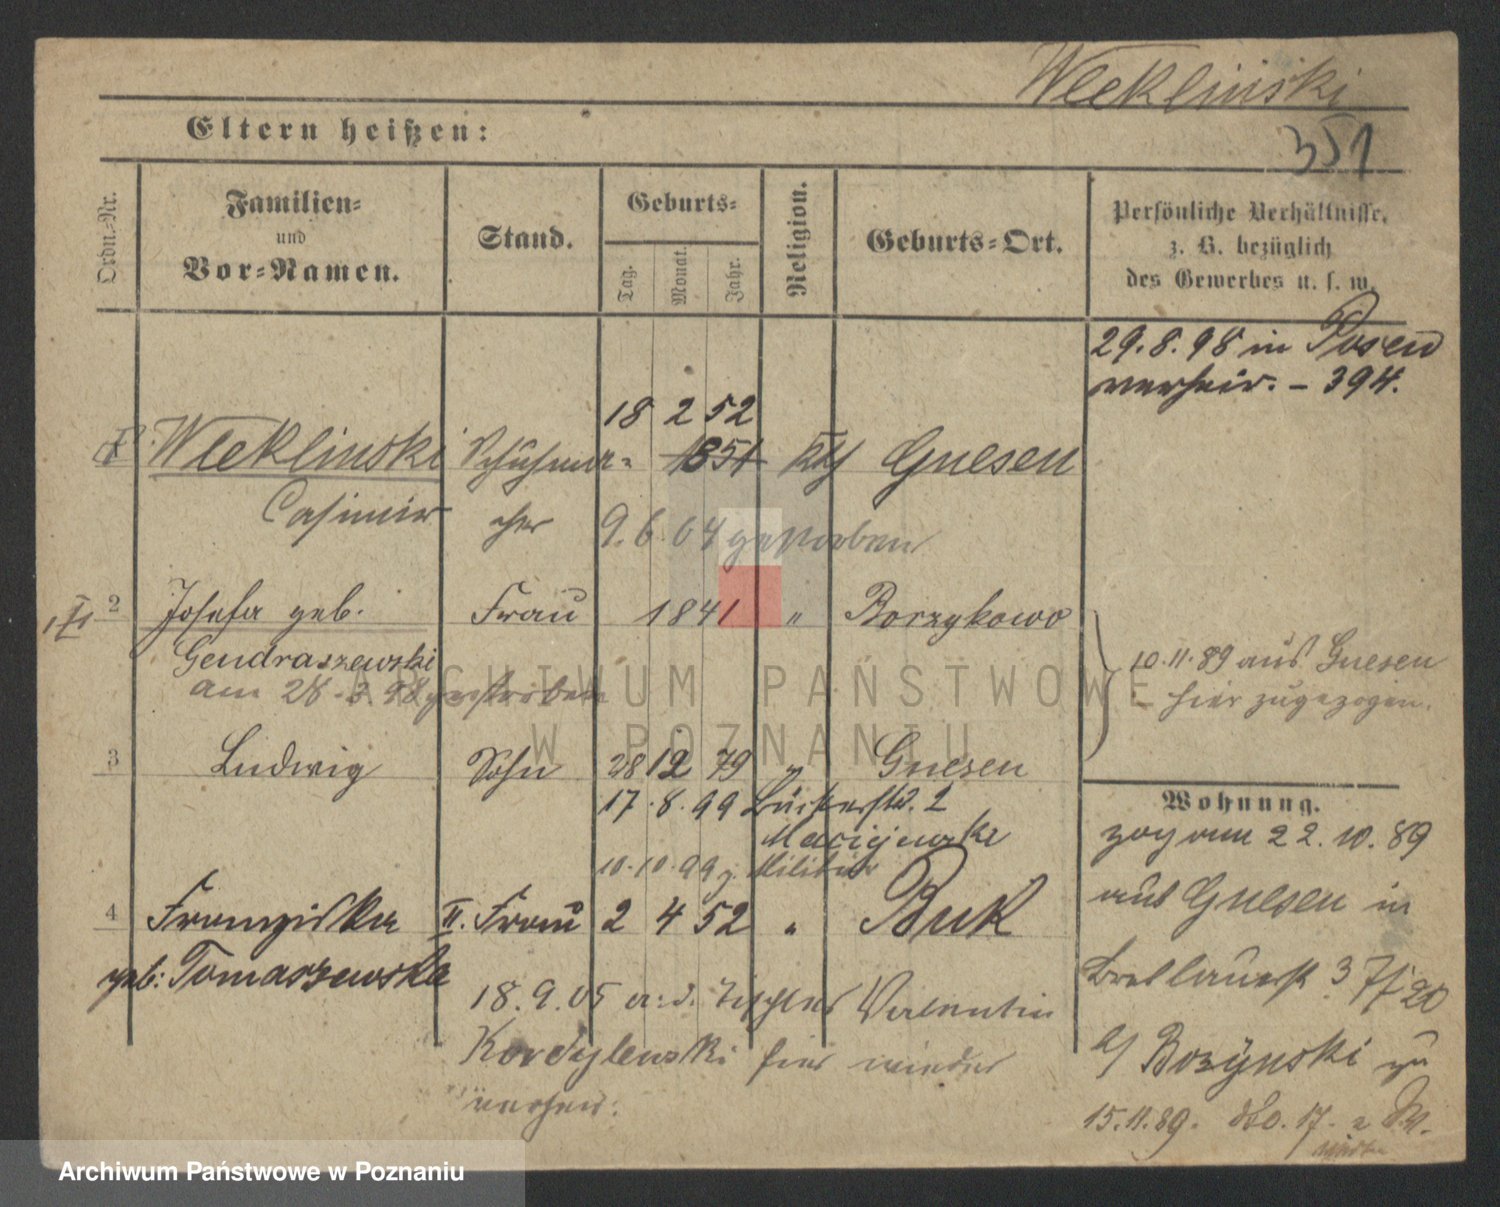 Wleklinski
351
Eltern heißen:
Ordn.-Nr.
Familien-
und
Vor-Namen.
Stand.
Geburts-
Tag.
Monat.
Jahr.
Religion.
Geburts-Ort.
Persönliche Verhältnisse,
z. B. bezüglich
des Gewerbes u. s. w.
29.8.98 in Posen
verheir. - 394.
18 2 52
Wleklinski Schuhma- 1851 kth Gnesen
Casimir cher 9.6.04 gestorben
2 Josefa geb. Frau 1841 " Borzykowo
Gendraszewski
am 28.3.98 gestorben
10.11.89 aus Gnesen
hier zugezogen.
3 Ludwig Sohn 28 12 79 " Gnesen
17.8.99 2
Maciejewski
10.10.99 z. Militär
4 Franziska II. Frau 2 4 52 " Buk
geb: Tomaszewska
18.9.05 a. d. Tischler Valentin
Kordylewski hier wieder
verheir:
Wohnung.
zog am 22.10.89
aus Gnesen in
Breslauerst. 37
20
b/ Bozynski zu
15.11.89. do. 17.
ARCHIWUM PAŃSTWOWE
W POZNANIU
Archiwum Państwowe w Poznaniu